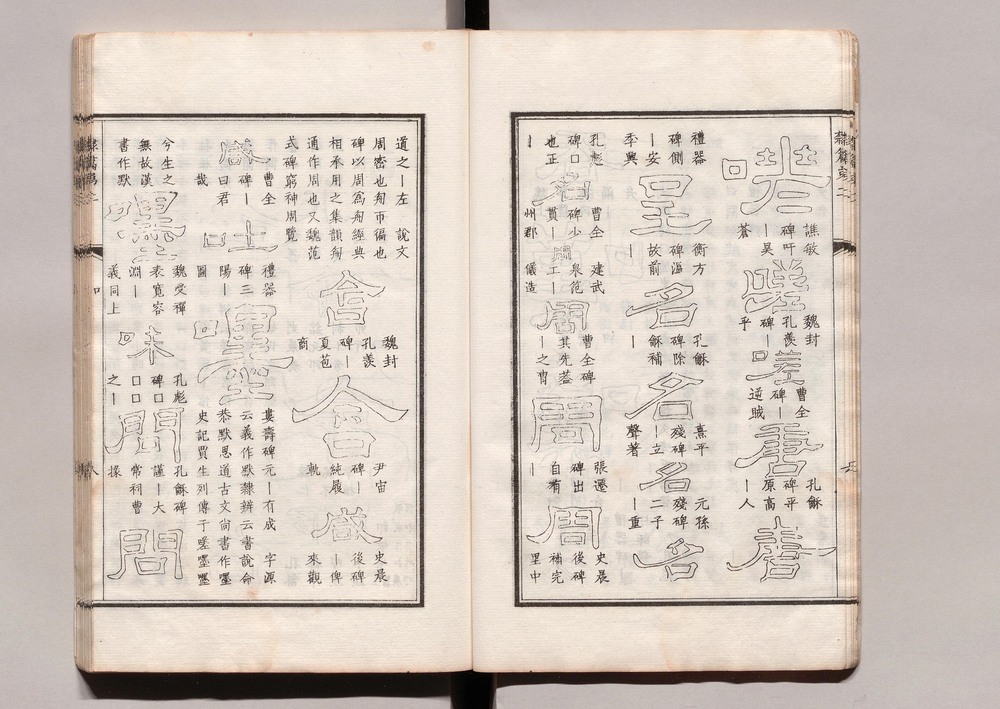 譙敏
碑吁
｜昊
蒼
魏封
孔羨
碑｜
乎
嗟
曹全
碑｜
逆賊
唐
孔龢
碑平
原高
｜人
唐
禮器
碑側
｜安
季興
衡方
碑謳
故前
｜
名
孔龢
碑除
龢補
｜
名
熹平
殘碑
｜立
聲著
名
元孫
殘碑
二子
｜重
名
孔彪
碑口
也正
｜
曹全
碑少
貫｜
州郡
建武
泉范
工｜
儀造
周
曹全碑
其先蓋
｜之胄
周
張遷
碑出
自有
｜
周
史晨
後碑
補完
里中
道之｜左　說文
周密也匊帀徧也
碑以周爲匊經典
相承用之集韻匊
通作周也又魏范
式碑窮神周覽
會
魏封
孔羨
碑｜
夏苞
商
合
尹宙
碑｜
純履
軌
咸
史晨
後碑
｜俾
來觀
咸
曹全
碑｜
曰君
哉
吐
禮器
碑三
陽｜
圖
婁壽碑元｜有成　字源
云義作默隸辨云書說命
恭默思道古文尙書作嚜
史記賈生列傳于嗟嚜嚜
兮生之
無故漢
書作默
魏受禪
表寬容
淵｜
義同上
味
孔彪
碑口
口口
之｜
問
孔龢碑
謹｜大
常祠曹
掾
問